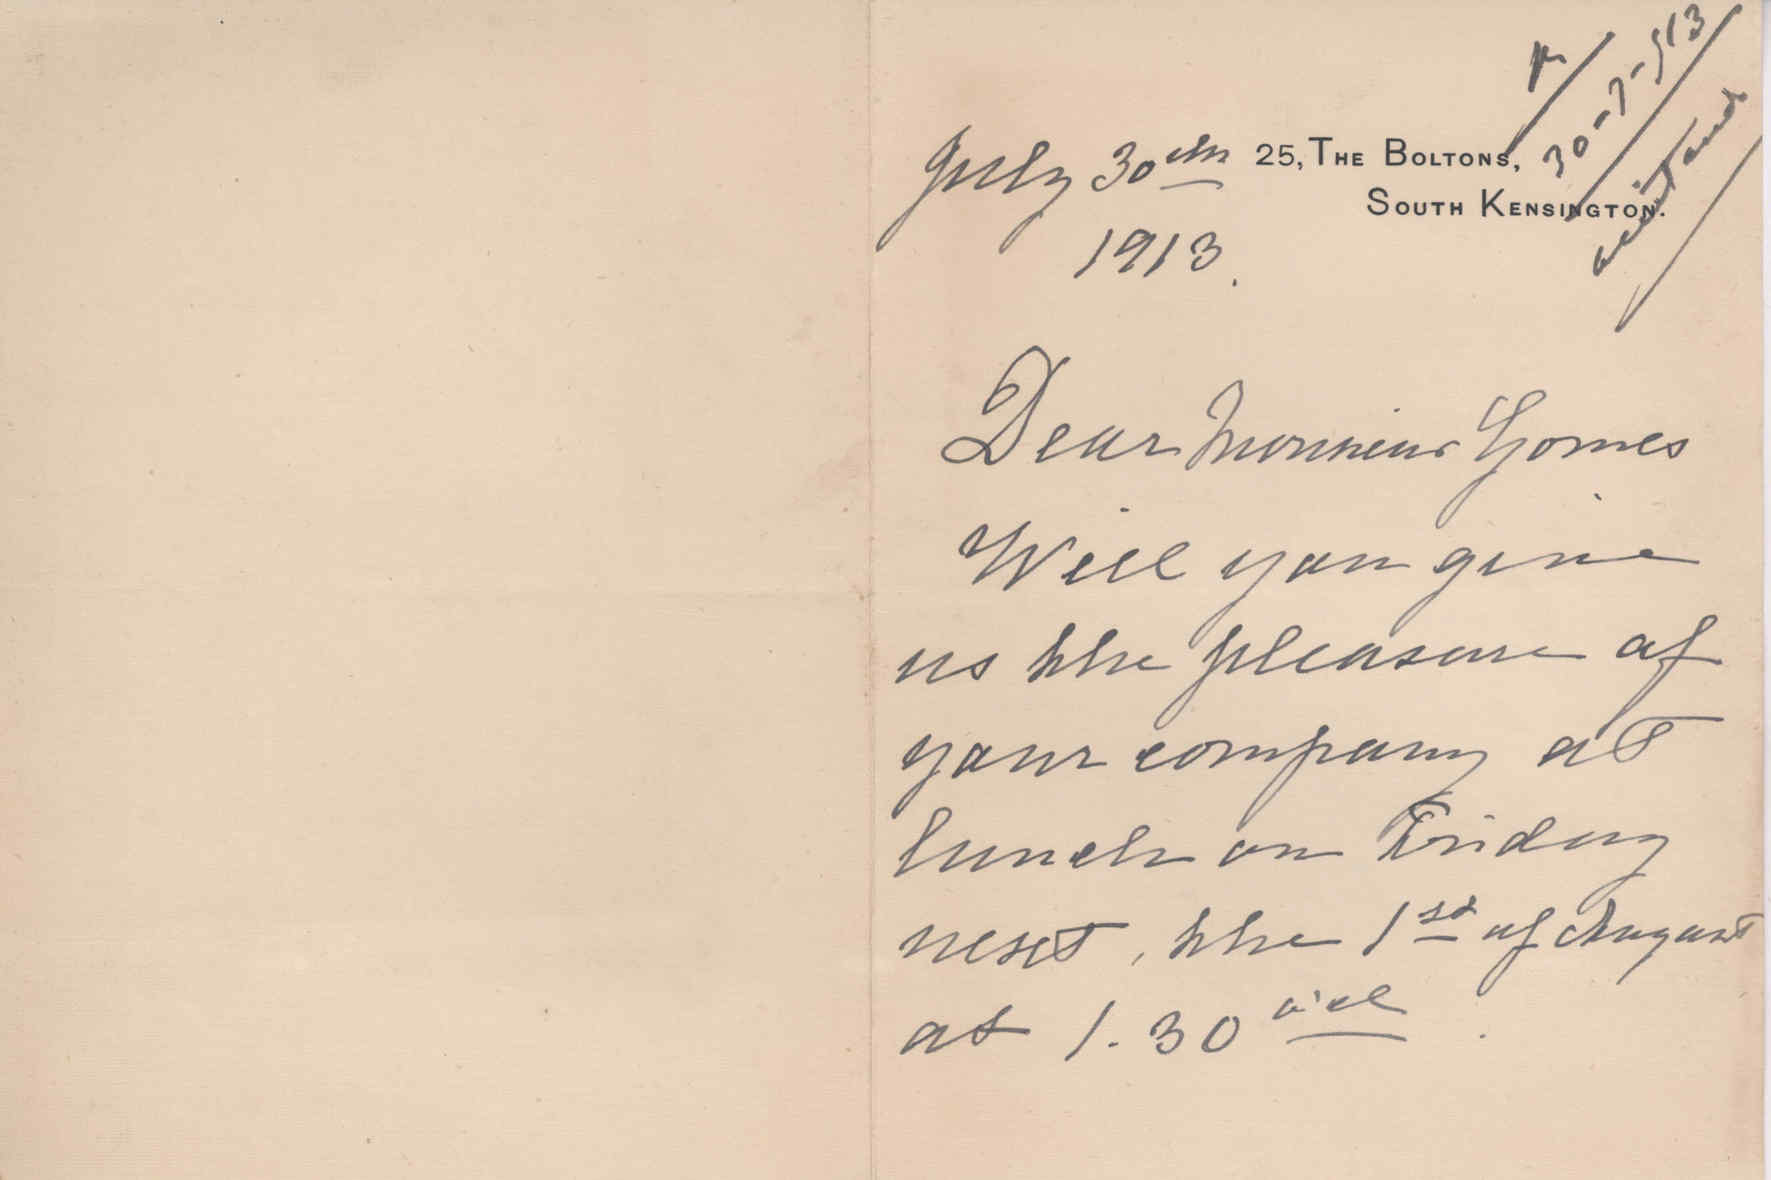 July 30th 25, THE BOLTONS,
SOUTH KENSINGTON.
1913.
30-7-913
Dear Monsieur Gomes
Will you give
us the pleasure of
your company at
lunch on Friday
next, the 1st of August
at 1.30 o'cl.